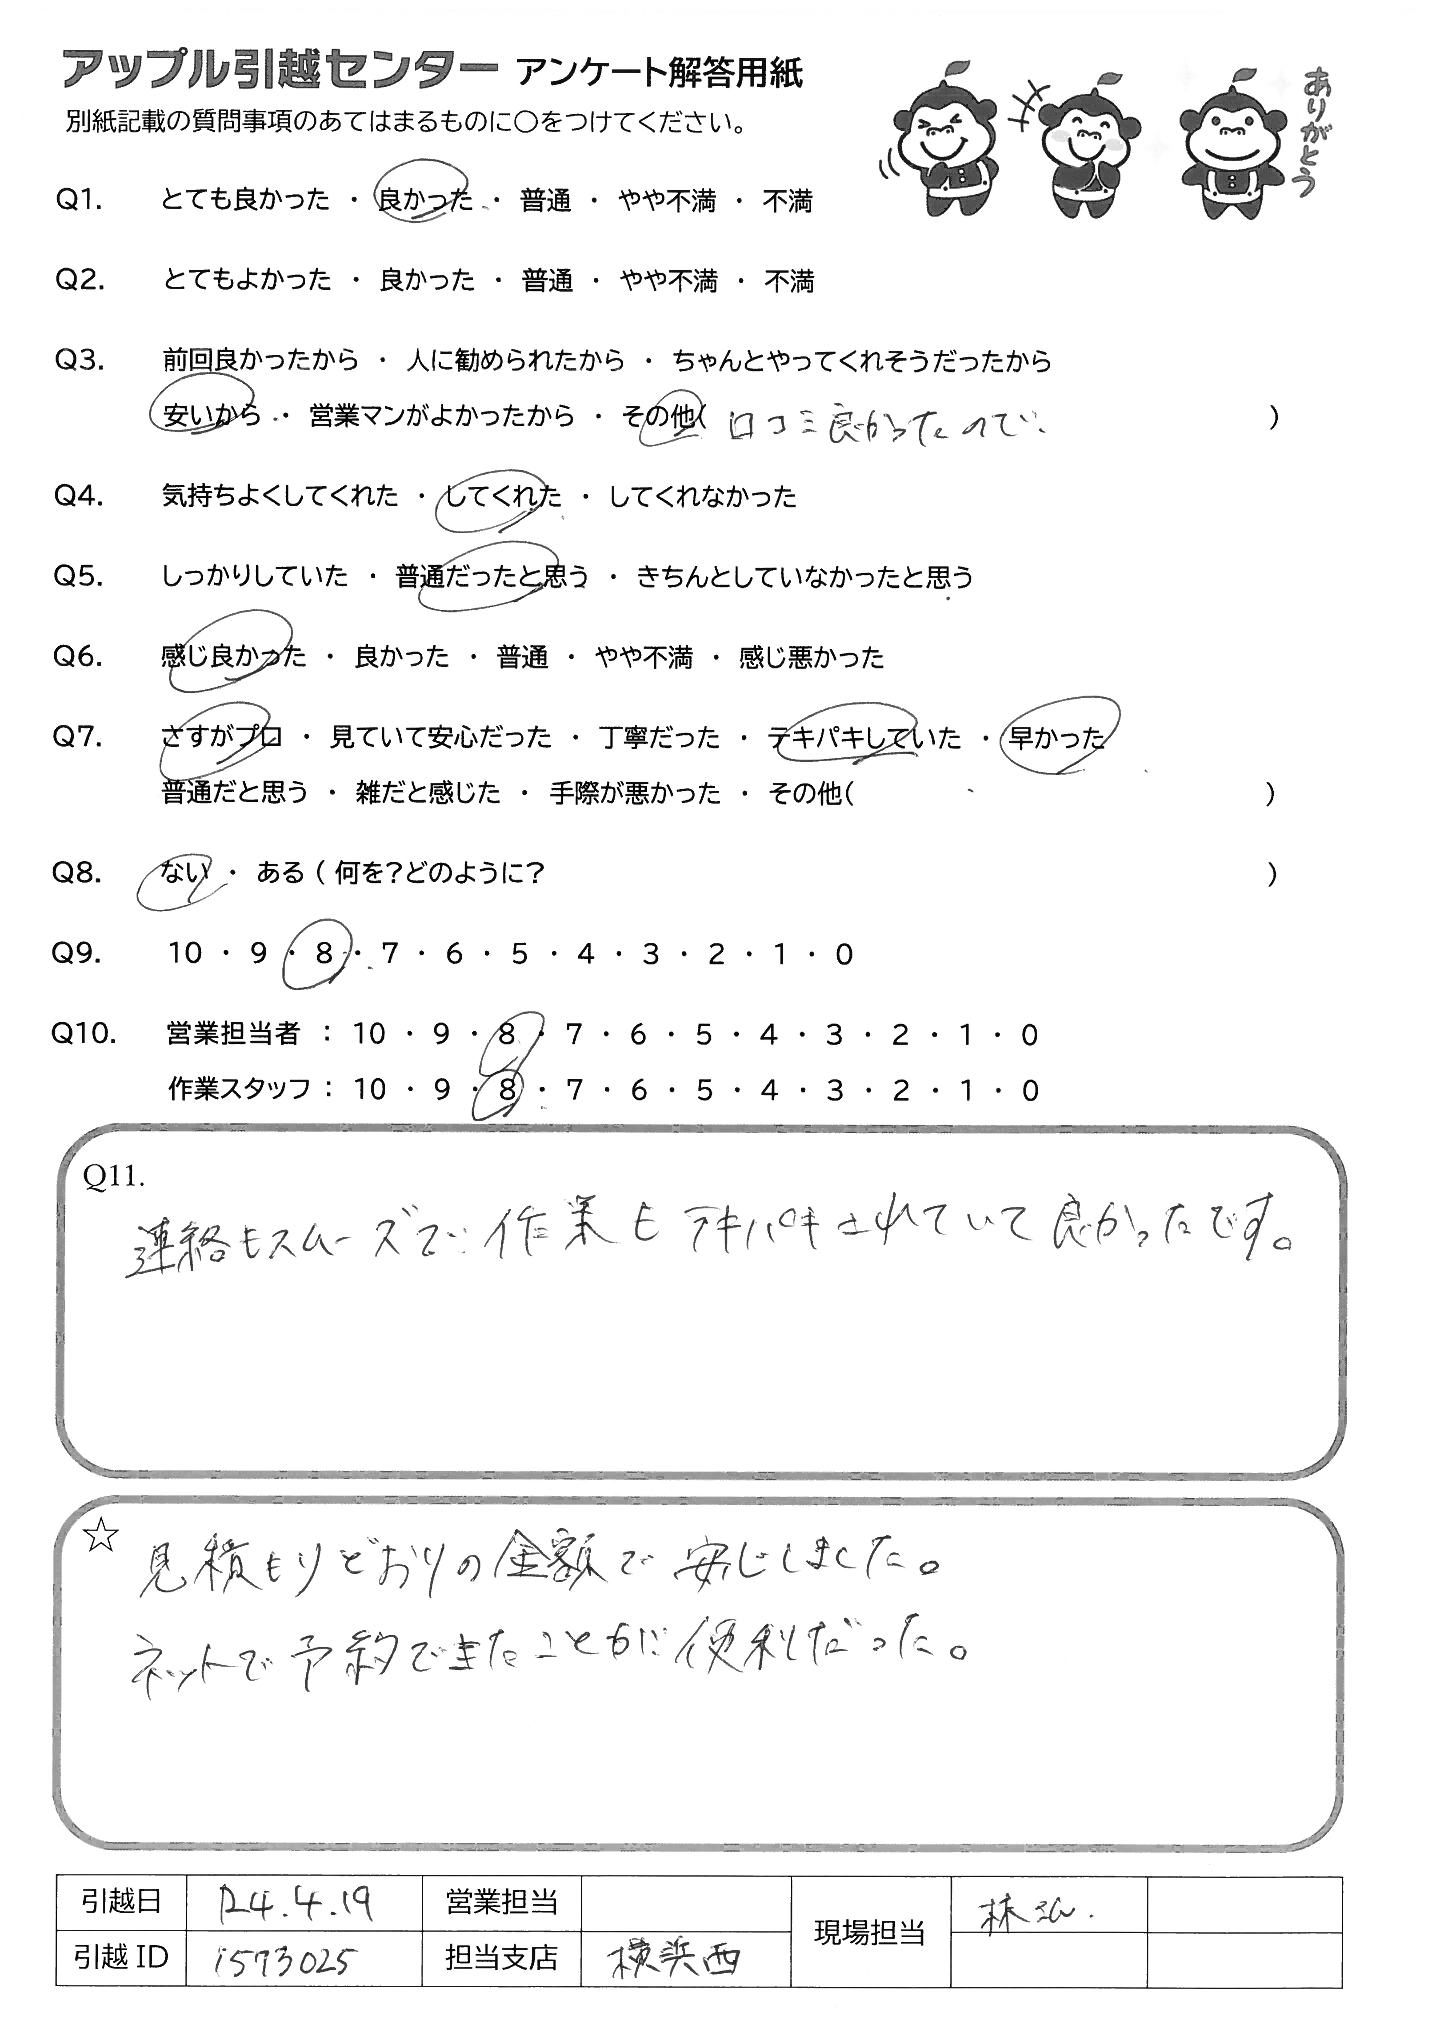 アップル引越センター アンケート解答用紙
別紙記載の質問事項のあてはまるものに〇をつけてください。
ありがとう
Q1. とても良かった ・ 良かった ・ 普通 ・ やや不満 ・ 不満
Q2. とてもよかった ・ 良かった ・ 普通 ・ やや不満 ・ 不満
Q3. 前回良かったから ・ 人に勧められたから ・ ちゃんとやってくれそうだったから
安いから ・ 営業マンがよかったから ・ その他( 口コミ良かったので )
Q4. 気持ちよくしてくれた ・ してくれた ・ してくれなかった
Q5. しっかりしていた ・ 普通だったと思う ・ きちんとしていなかったと思う
Q6. 感じ良かった ・ 良かった ・ 普通 ・ やや不満 ・ 感じ悪かった
Q7. さすがプロ ・ 見ていて安心だった ・ 丁寧だった ・ テキパキしていた ・ 早かった
普通だと思う ・ 雑だと感じた ・ 手際が悪かった ・ その他( )
Q8. ない ・ ある ( 何を?どのように? )
Q9. 10 ・ 9 ・ 8 ・ 7 ・ 6 ・ 5 ・ 4 ・ 3 ・ 2 ・ 1 ・ 0
Q10. 営業担当者 : 10 ・ 9 ・ 8 ・ 7 ・ 6 ・ 5 ・ 4 ・ 3 ・ 2 ・ 1 ・ 0
作業スタッフ : 10 ・ 9 ・ 8 ・ 7 ・ 6 ・ 5 ・ 4 ・ 3 ・ 2 ・ 1 ・ 0
Q11.
連絡もスムーズで作業もテキパキされていて良かったです。
☆ 見積もりどおりの金額で安心しました。
ネットで予約できたことが便利だった。
引越日 R4.4.19 営業担当 現場担当 林
引越ID 1573025 担当支店 横浜西